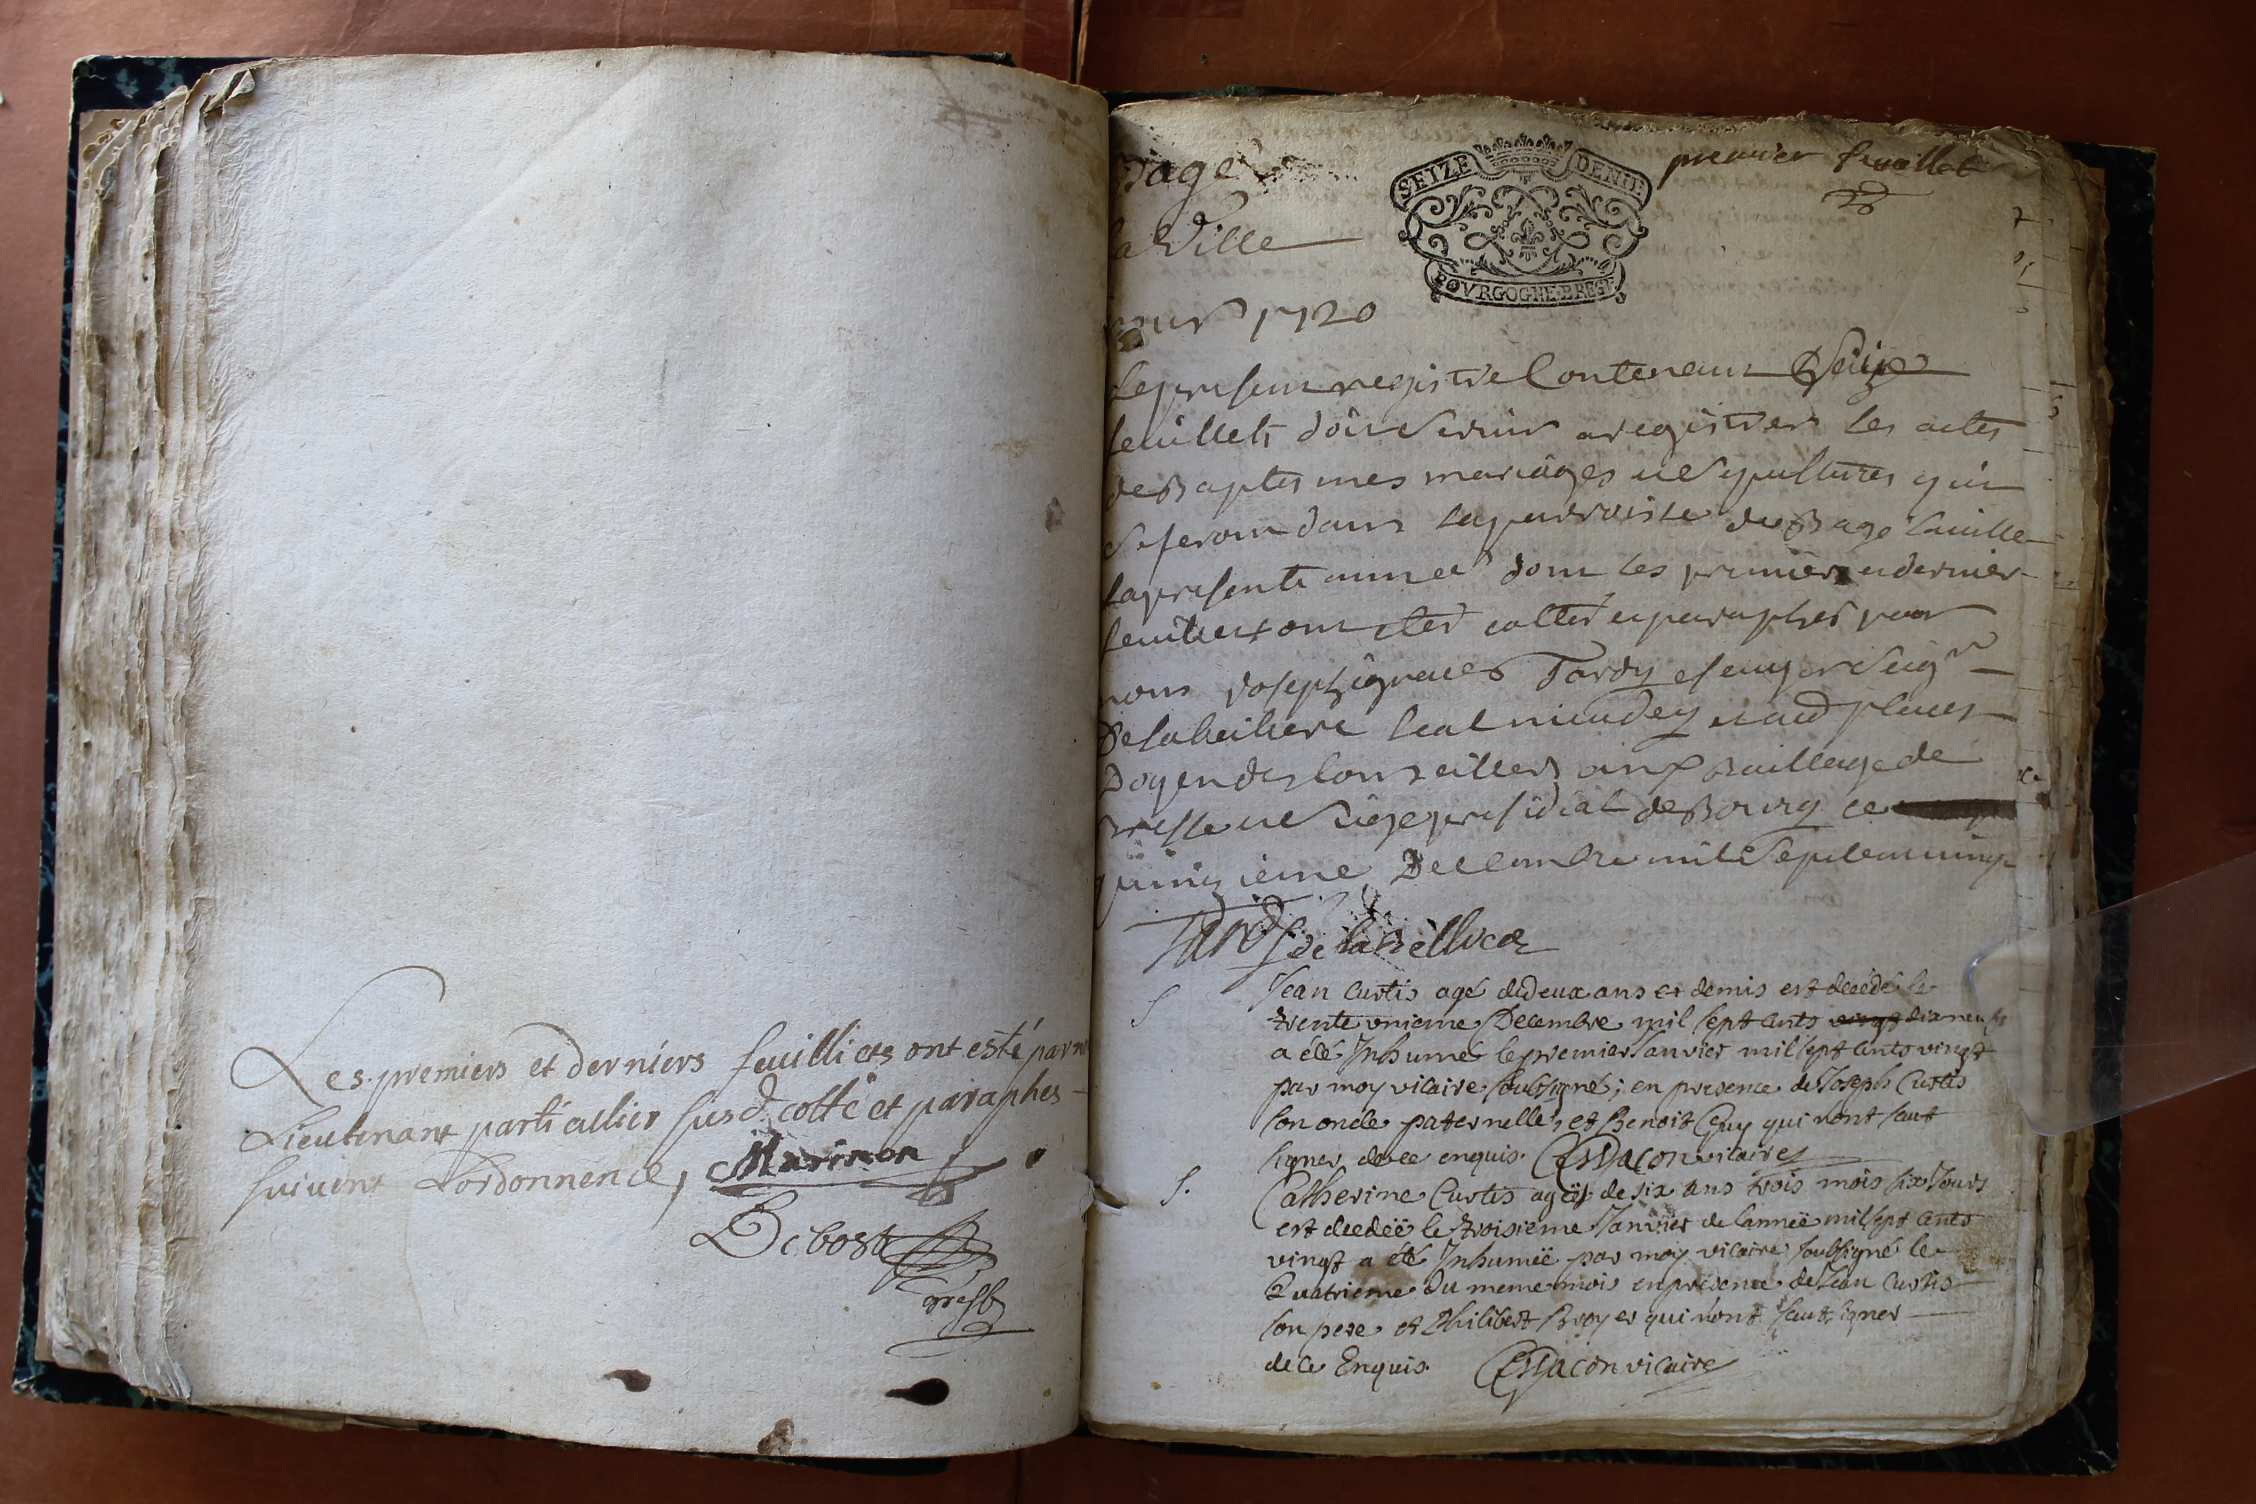 Les premiers et derniers feuilliets ont esté par n
Lieutenant particullier susd cotté et paraphes
suivent Lordonnence, Marinon
Debost
gresb
Bagé
la Ville
pour 1720
SEIZE DENIE
BOVRGOGNE·BRESE
premier feuillet
Le present registre Contenant Seize
feuillets doit servir a registrer les actes
de Baptesmes mariages et Sepultures qui
se feront dans la parroisse de Bagé laville
la presente année dont les premier et dernier
feuillet ont étés cottés et paraphés par
nous Joseph ignaces Tardy escuyer Seigr
De la
Doyen des Conseillers aux Bailliage de
Bresse et Siege presidial de Bourg ce
quinzieme Decembre mil Sept cent vingt
Tardy de la Bellvere
S Jean Curtis agé de deux ans et demis est décédé le
trente unieme Decembre mil sept cents vingt dix neufs
a été Inhumé le premier Janvier mil sept cents vingt
par moy vicaire soubsigné; en presence de Joseph Curtis
son oncle paternelle, et Benoit Guy qui n'ont sceut
signer de ce enquis. Dacon vicaire
S. Catherine Curtis agéë de six ans trois mois six Jours
est decedéë le troisieme Janvier de l'annéë mil sept cents
vingt a été Inhuméë par moy vicaire soubsigné le
Quatrieme du meme mois en presence de Jean Curtis
son pere et Philibert Broyer qui n'ont sceut signer
de ce Enquis. Dacon vicaire